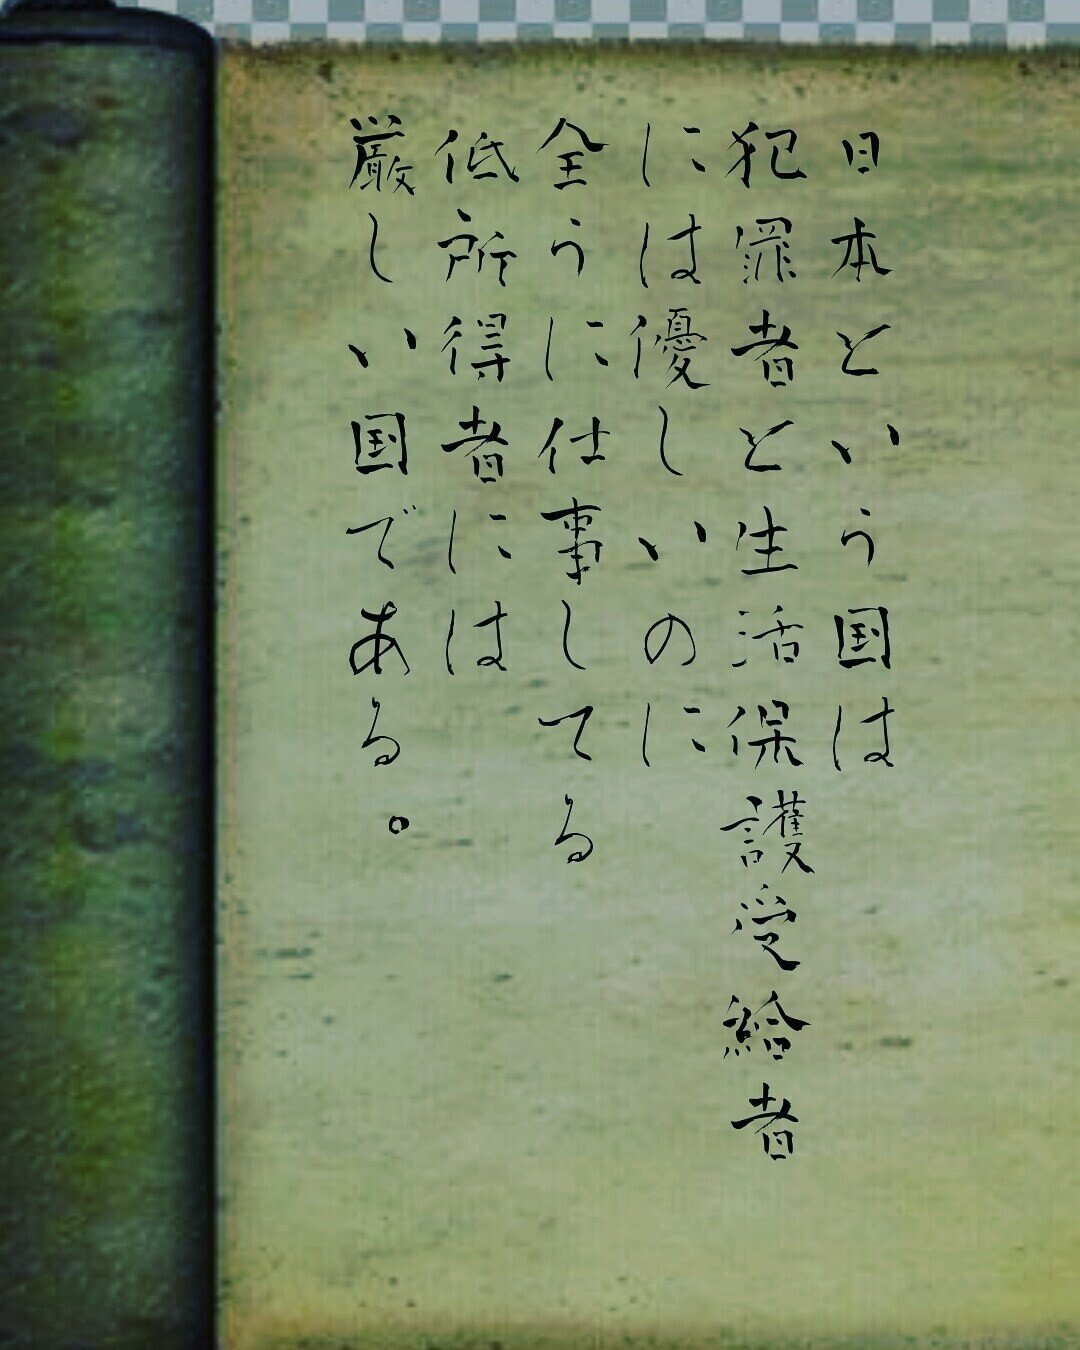 日本という国は
犯罪者と生活保護受給者
には優しいのに
全うに仕事してる
低所得者には
厳しい国である。